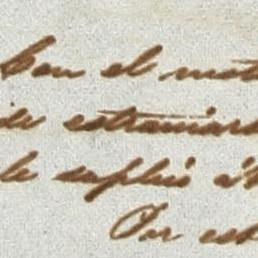 Con el mot
de estraviars
le suplió
Por est